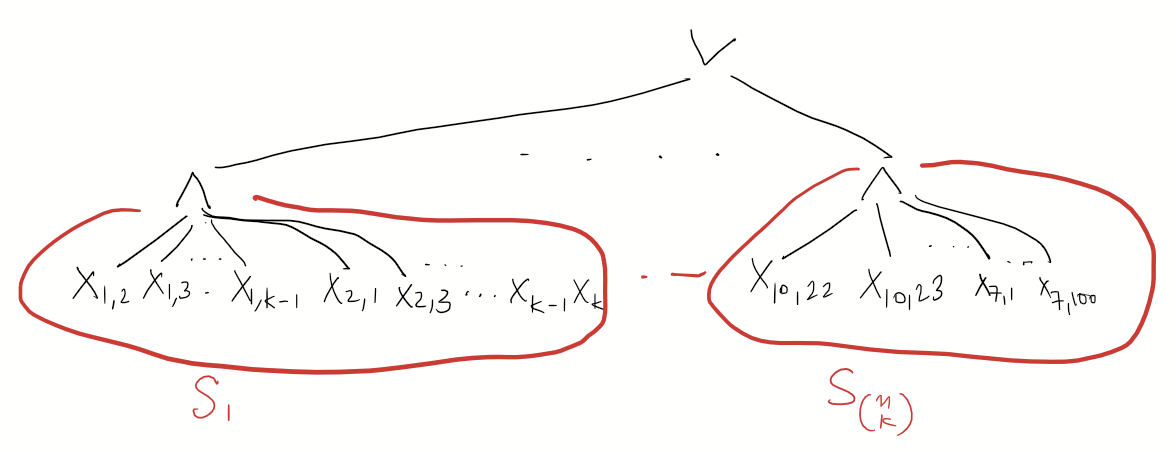 ∨
∧ ∧
X1,2 X1,3 . X1,k-1 X2,1 X2,3 ... Xk-1 Xk X10,22 X10,23 X7,1 X7,100
S1 S(n k)